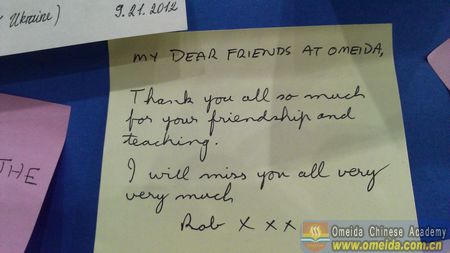 Ukraine)
9.21.2012
MY DEAR FRIENDS AT OMEIDA,
Thank you all so much
for your friendship and
teaching.
I will miss you all very
very much
Rob X x x
THE
Omeida Chinese Academy
www.omeida.com.cn